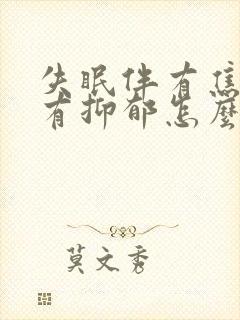 失眠伴有焦
有抑郁怎麼
莫文秀